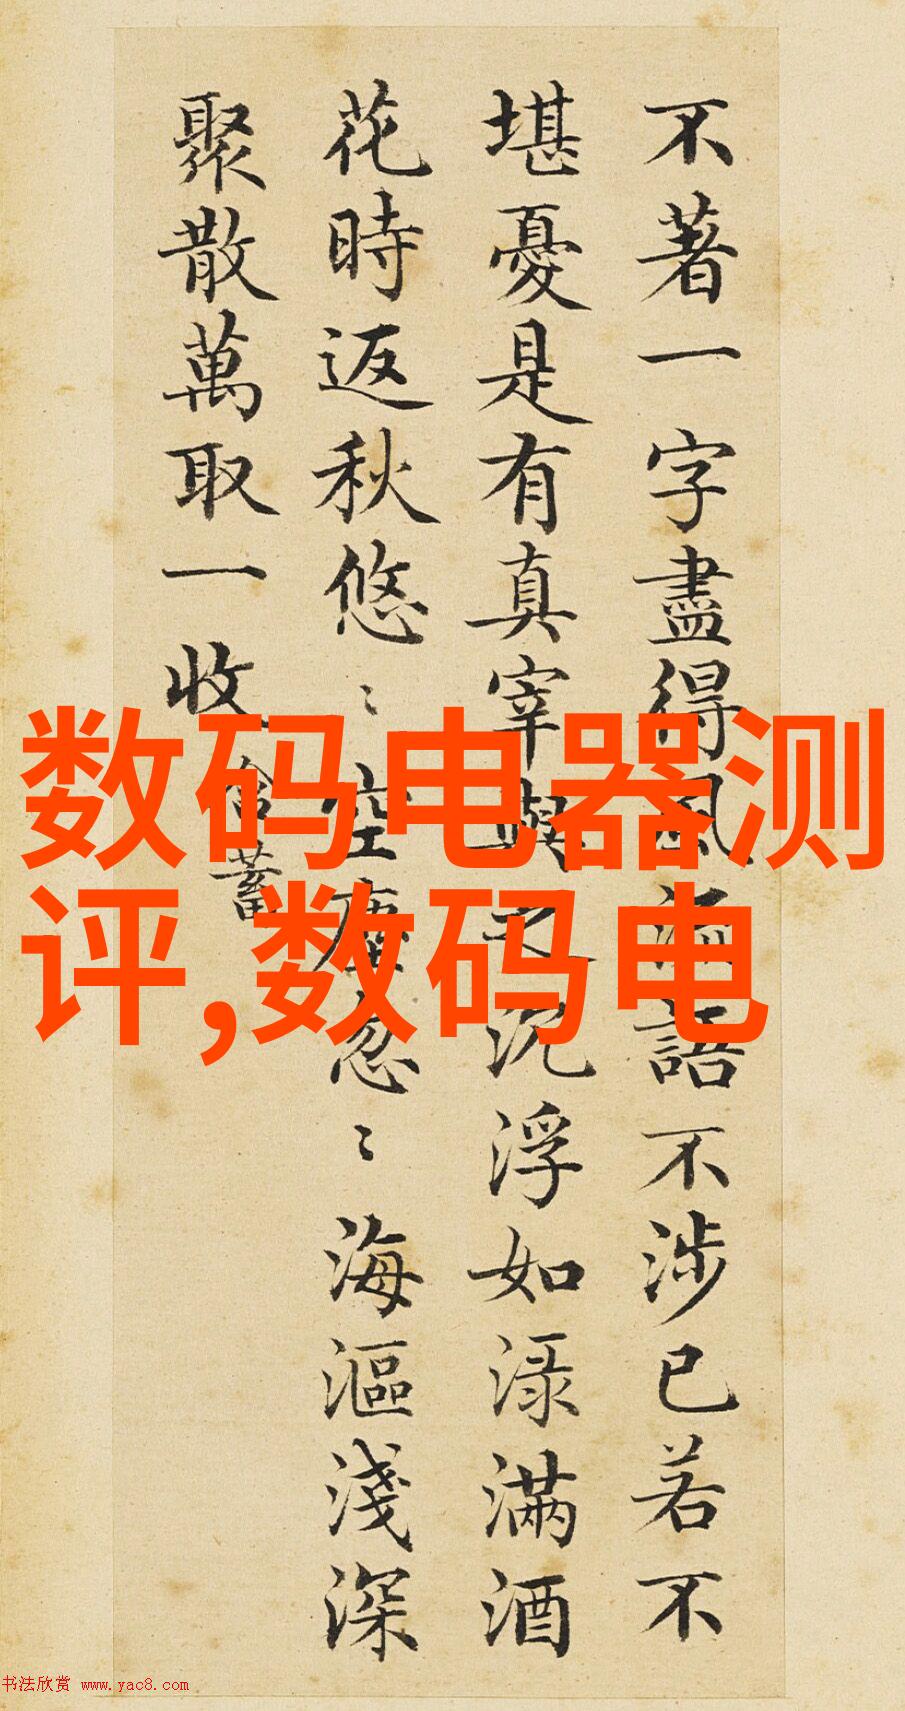 不著一字盡得風流語不涉已若不
堪憂是有真宰與之沉浮如渌滿酒
花時返秋悠〻空塵忽〻海漚淺深
聚散萬取一收
含蓄
数码电器测
评,数码电
书法欣赏 www.yac8.com